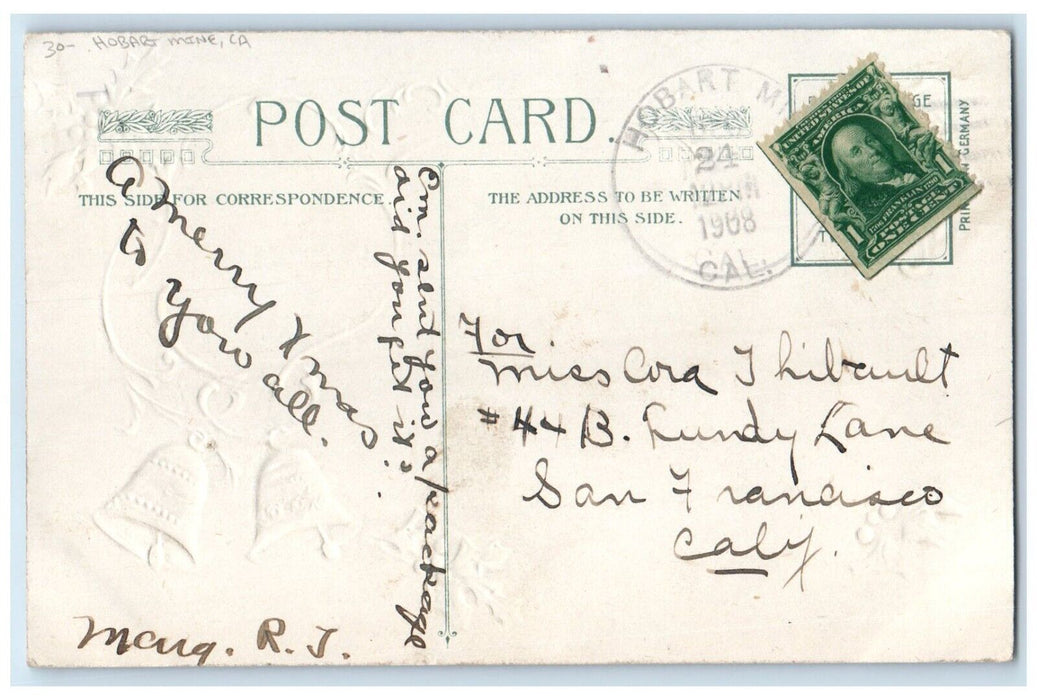 30- HOBART MINE, CA
POST CARD.
THIS SIDE FOR CORRESPONDENCE.
THE ADDRESS TO BE WRITTEN
ON THIS SIDE.
HOBART MI
24
1908
CAL.
UNITED STATES OF
AMERICA
FRANKLIN
POSTAGE
1 ONE CENT 1
GERMANY
A Merry Xmas
to you all.
Em. sent you a package
did you get it?
Marg. R. T.
For
Miss Cora Thibault
# 44 B. Lundy Lane
San Francisco
Calif.